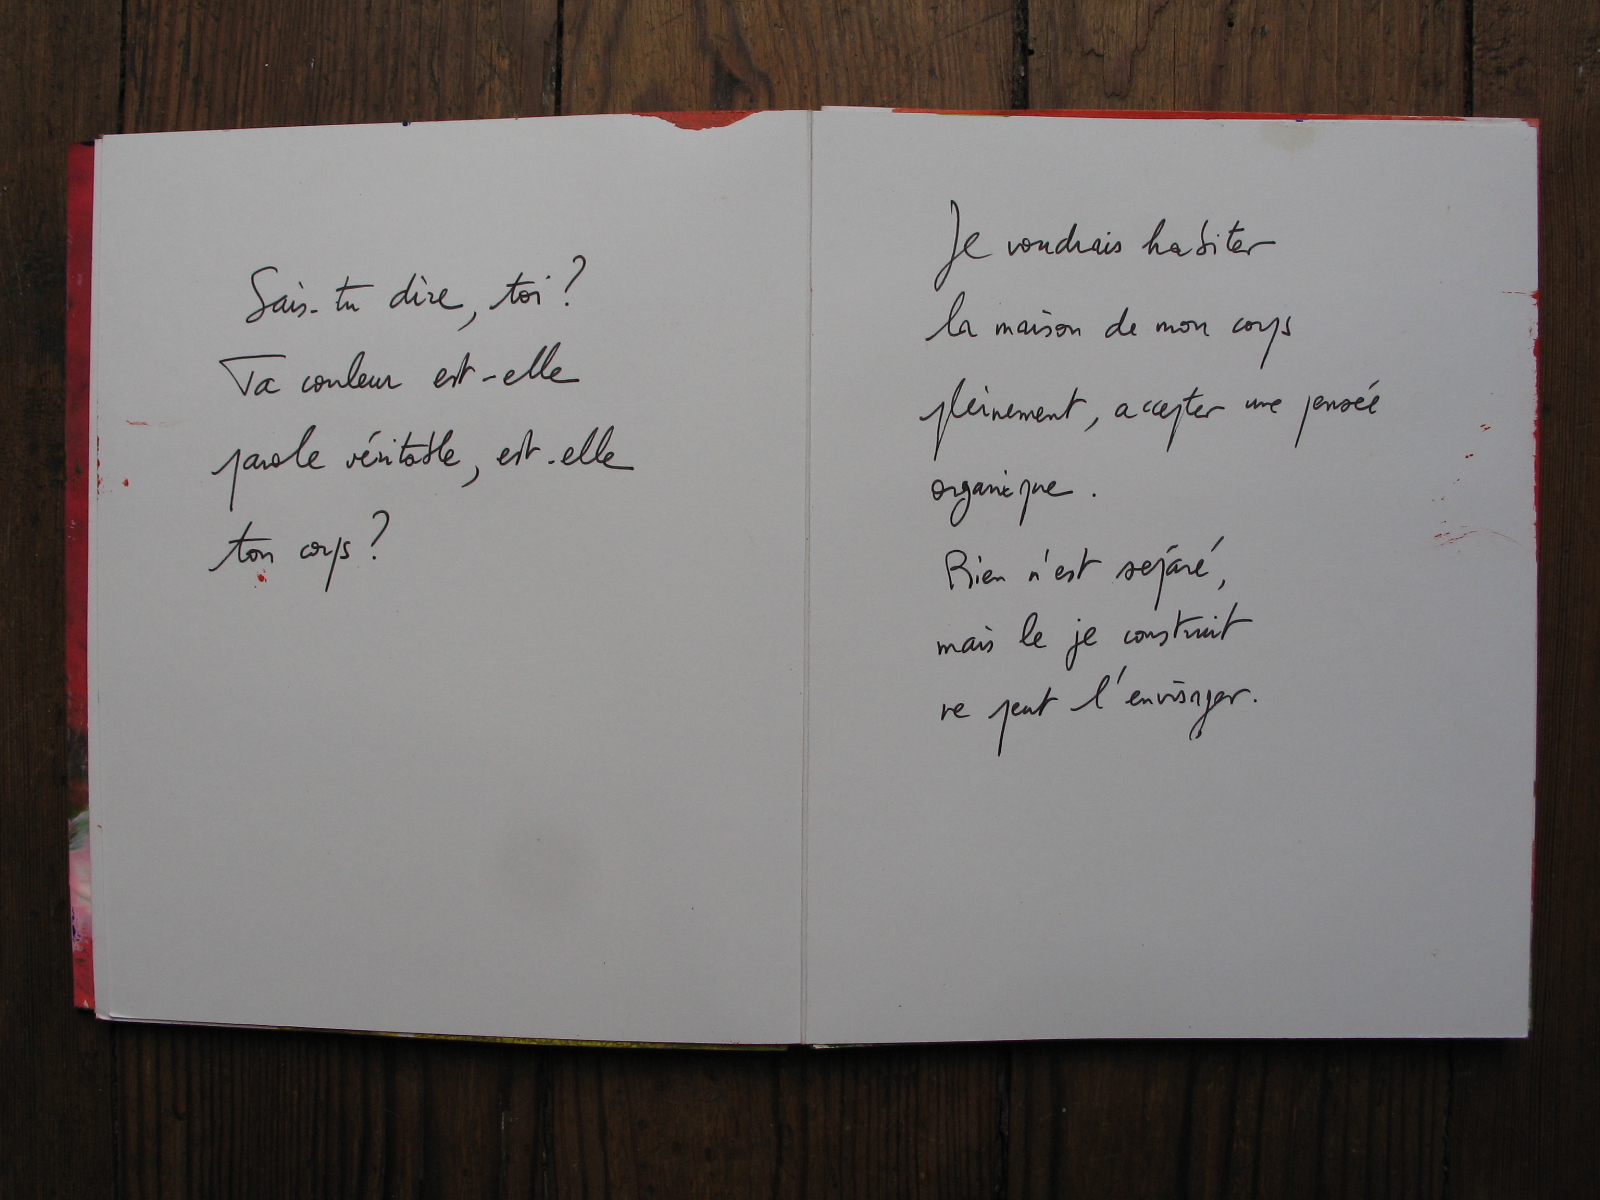 Sais-tu dire, toi ?
Ta couleur est-elle
parole véritable, est-elle
ton corps ?
Je voudrais habiter
la maison de mon corps
pleinement, accepter une pensée
organique.
Rien n'est séparé,
mais le je construit
ne peut l'envisager.